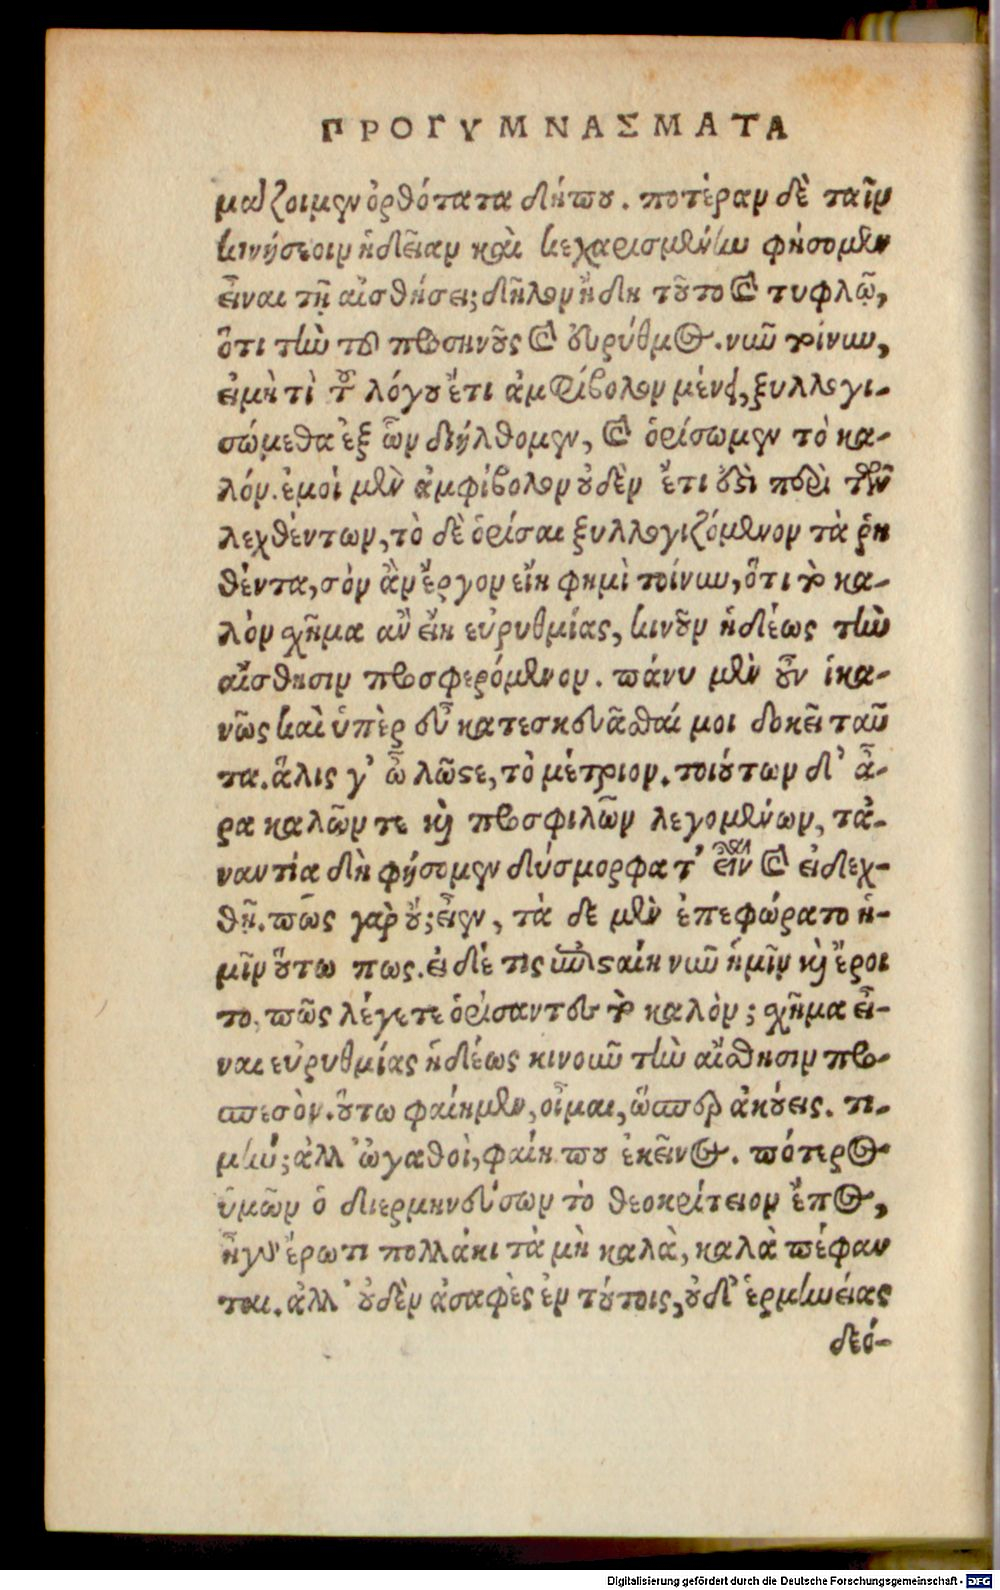 ΠΡΟΓΥΜΝΑΣΜΑΤΑ
μάζοιμεν ὀρθότατα δήπου. ποτέραν δὲ ταῖν
κινήσεοιν ἡδεῖαν καὶ κεχαρισμένην φήσομεν
εἶναι τῇ αἰσθήσει; δῆλον ἤδη τοῦτο καὶ τυφλῷ,
ὅτι τὴν τοῦ προσηνοῦς καὶ εὐρύθμου. νῦν τοίνυν,
εἰ μή τι τοῦ λόγου ἔτι ἀμφίβολον μένει, ξυλλογι-
σώμεθα ἐξ ὧν διήλθομεν, καὶ ὁρίσωμεν τὸ κα-
λόν. ἐμοὶ μὲν ἀμφίβολον οὐδὲν ἔτι ἐστὶ περὶ τῶν
λεχθέντων, τὸ δὲ ὁρίσαι ξυλλογιζόμενον τὰ ῥη
θέντα, σὸν ἂν ἔργον εἴη φημὶ τοίνυν, ὅτι τὸ κα-
λὸν χῆμα ἂν εἴη εὐρυθμίας, κινοῦν ἡδέως τὴν
αἴσθησιν προσφερόμενον. πάνυ μὲν οὖν ἱκα-
νῶς καὶ ὑπὲρ εὖ κατεσκευᾶσθαί μοι δοκεῖ ταῦ
τα. ἅλις γ' ὦ λῶστε, τὸ μέτριον. τοιούτων δ' ἄ-
ρα καλῶν τε καὶ προσφιλῶν λεγομένων, τἀ-
ναντία δὴ φήσομεν δύσμορφα τ' εἶναι καὶ εἰδεχ-
θῆ. πῶς γὰρ οὔ; εἶεν, τὰ δε μὲν ἐπεφώρατο ἡ-
μῖν οὕτω πως. εἰ δέ τις ἐπισταίη νῦν ἡμῖν καὶ ἔροι
το, πῶς λέγετε ὁρίσαντες τὸ καλὸν; χῆμα εἶ-
ναι εὐρυθμίας ἡδέως κινοῦν τὴν αἴσθησιν προ-
σπεσὸν. οὕτω φαίημεν, οἶμαι, ὥσπερ ἀκούεις. τί
μήν; ἀλλ' ὠγαθοὶ, φαίη που ἐκεῖνος. πότερος
ὑμῶν ὁ διερμηνεύσων τὸ θεοκρίτειον ἔπος,
ἦ γὰρ ἔρωτι πολλάκι τὰ μὴ καλὰ, καλὰ πέφαν
ται. ἀλλ' οὐδὲν ἀσαφὲς ἐν τούτοις, οὐδ' ἑρμηνείας
δεό-
Digitalisierung gefördert durch die Deutsche Forschungsgemeinschaft - DFG